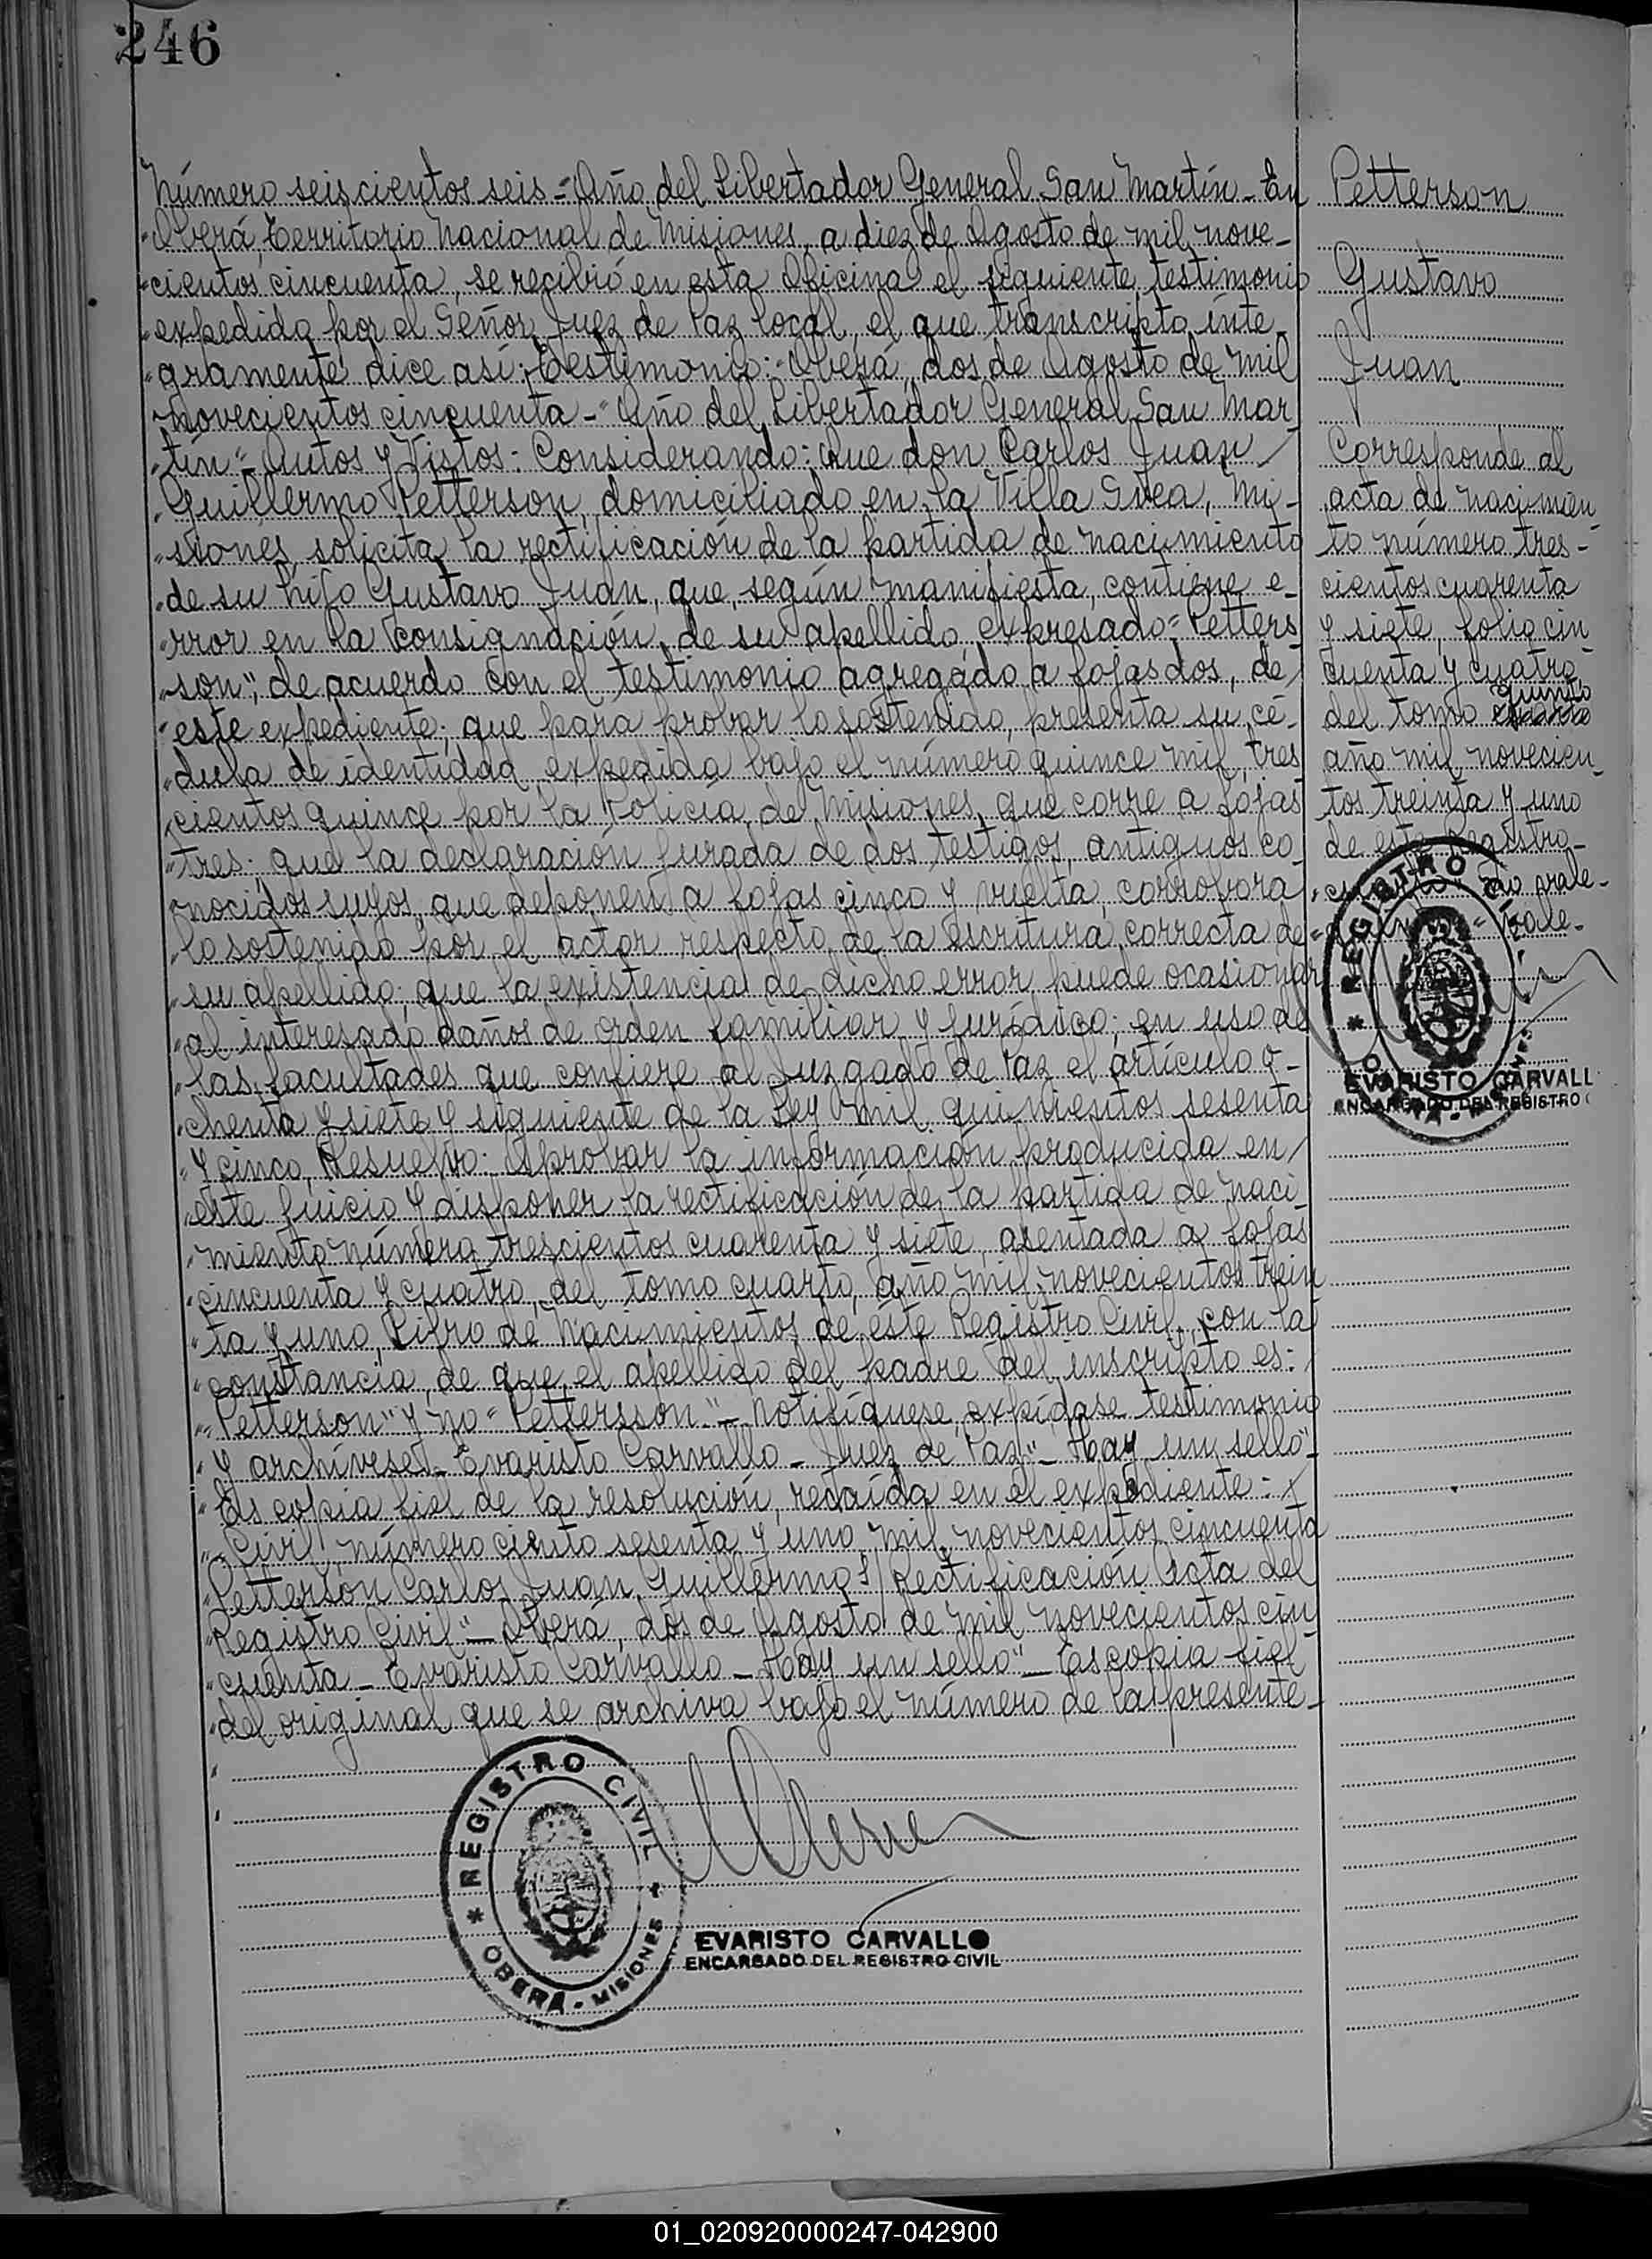 246
Número seiscientos seis - "Año del Libertador General San Martín - En
Oberá, Territorio Nacional de Misiones, a diez de Agosto de mil nove-
cientos cincuenta, se recibió en esta Oficina el siguiente testimonio
expedido por el Señor Juez de Paz local, el que transcripto ínte-
gramente dice así: Testimonio: - Oberá, dos de Agosto de mil
novecientos cincuenta - "Año del Libertador General San Mar
tín" - Autos y Vistos: Considerando: Que don Carlos Juan
Guillermo Petterson, domiciliado en la Villa Svea, Mi-
siones, solicita la rectificación de la partida de nacimiento
de su hijo Gustavo Juan, que, según manifiesta, contiene e-
rror en la consignación de su apellido, expresado "Petters
son", de acuerdo con el testimonio agregado a fojas dos, de
este expediente; que para probar lo sostenido, presenta su cé-
dula de identidad expedida bajo el número quince mil tres
cientos quince por la Policía de Misiones, que corre a fojas
tres; que la declaración jurada de dos testigos, antiguos co-
nocidos suyos, que deponen a fojas cinco y vuelta, corrobora
lo sostenido por el actor respecto de la escritura correcta de
su apellido; que la existencia de dicho error puede ocasionar
al interesado daños de orden familiar y jurídico; en uso de
las facultades que confiere al Juzgado de Paz el artículo o-
chenta y siete y siguiente de la Ley mil quinientos sesenta
y cinco, Resuelvo: Aprobar la información producida en
este juicio y disponer la rectificación de la partida de naci
miento número trescientos cuarenta y siete, asentada a fojas
cincuenta y cuatro, del tomo cuarto, año mil novecientos trein
ta y uno, Libro de Nacimientos de éste Registro Civil, con la
constancia, de que el apellido del padre del inscripto es:
"Petterson" y no "Pettersson." - Notifíquese, expídase testimonio
y archívese. - Evaristo Carvallo - Juez de Paz" - Hay un sello" -
Es copia fiel de la resolución, recaída en el expediente:
Civil, número ciento sesenta y uno, mil novecientos cincuenta
Petterson Carlos Juan Guillermo s/ Rectificación Acta del
Registro Civil" - Oberá, dos de Agosto de mil novecientos cin
cuenta - Evaristo Carvallo - Hay un sello" - Es copia fiel
del original que se archiva bajo el número de la presente -
REGISTRO CIVIL
OBERÁ - MISIONES
EVARISTO CARVALLO
ENCARGADO DEL REGISTRO CIVIL
Petterson
Gustavo
Juan
Corresponde al
acta de nacimien
to número tres-
cientos cuarenta
y siete, folio cin
cuenta y cuatro
quinto
del tomo cuarto
año mil novecien
tos treinta y uno
de este Registro -
no vale -
vale -
REGISTRO
EVARISTO CARVALL
ENCARGADO DEL REGISTRO C
01_020920000247-042900